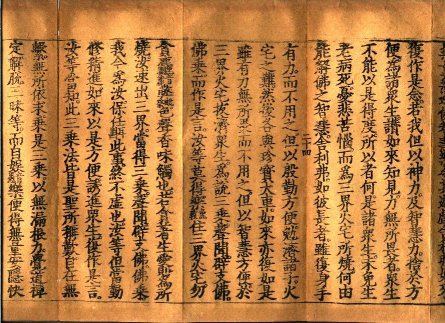 復作是念若我但以神力及智慧力捨於方
便為諸衆生讚如來知見力無所畏者衆生
不能以是得度所以者何是諸衆生未免生
老病死憂悲苦惱而為三界火宅所燒何由
能解佛之智慧舍利弗如彼長者雖復身手
二十四
有力而不用之但以慇懃方便勉濟諸子火
宅之難然後各與珍寶大車如來亦復如是
雖有力無所畏而不用之但以智慧方便於
三界火宅拔濟衆生為說三乘聲聞辟支佛
佛乘而作是言汝等莫得樂住三界火宅勿
貪麤弊色聲香味觸也若貪著生愛則為所
燒汝速出三界當得三乘聲聞辟支佛佛乘
我今為汝保任此事終不虛也汝等但當勤
修精進如來以是方便誘進衆生復作是言
汝等當知此三乘法皆是聖所稱歎自在無
繫無所依求乘是三乘以無漏根力覺道禪
定解脫三昧等而自娛樂便得無量安隱快